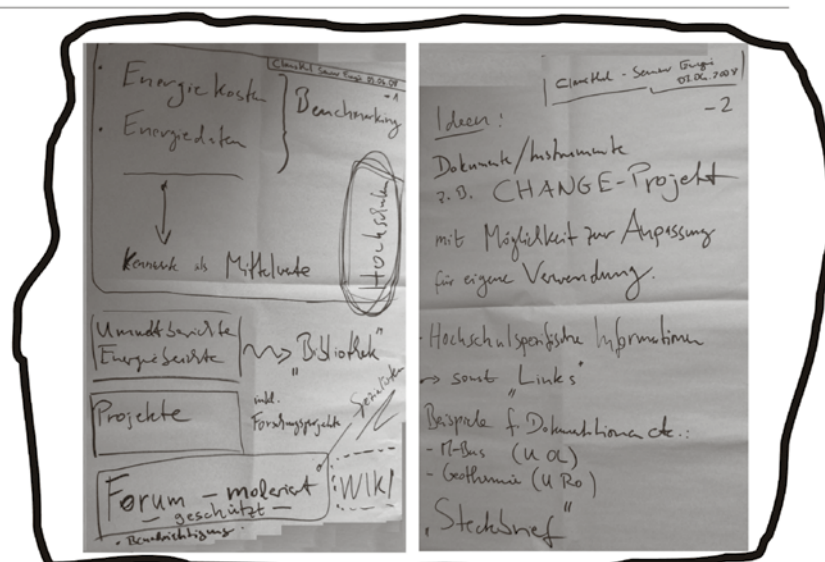 Clausthal - Seminar Energie 03.04.2008
- 1
• Energiekosten
• Energiedaten
Benchmarking
Kennwerte als Mittelwerte
Hochschulen
Umweltberichte
Energieberichte
"Bibliothek"
Projekte
inkl.
Forschungsprojekte
Forum - moderiert
- geschützt -
• Benachrichtigung
WIKI
Clausthal - Seminar Energie
03.04.2008
- 2
Ideen:
Dokumente/Instrumente
z.B. CHANGE-Projekt
mit Möglichkeit zur Anpassung
für eigene Verwendung.
· Hochschulspezifische Informationen
→ sonst "Links"
Beispiele f. Dokumentationen etc.:
- M-Bus (U OL)
- Geothermie (U Ro)
"Steckbrief"